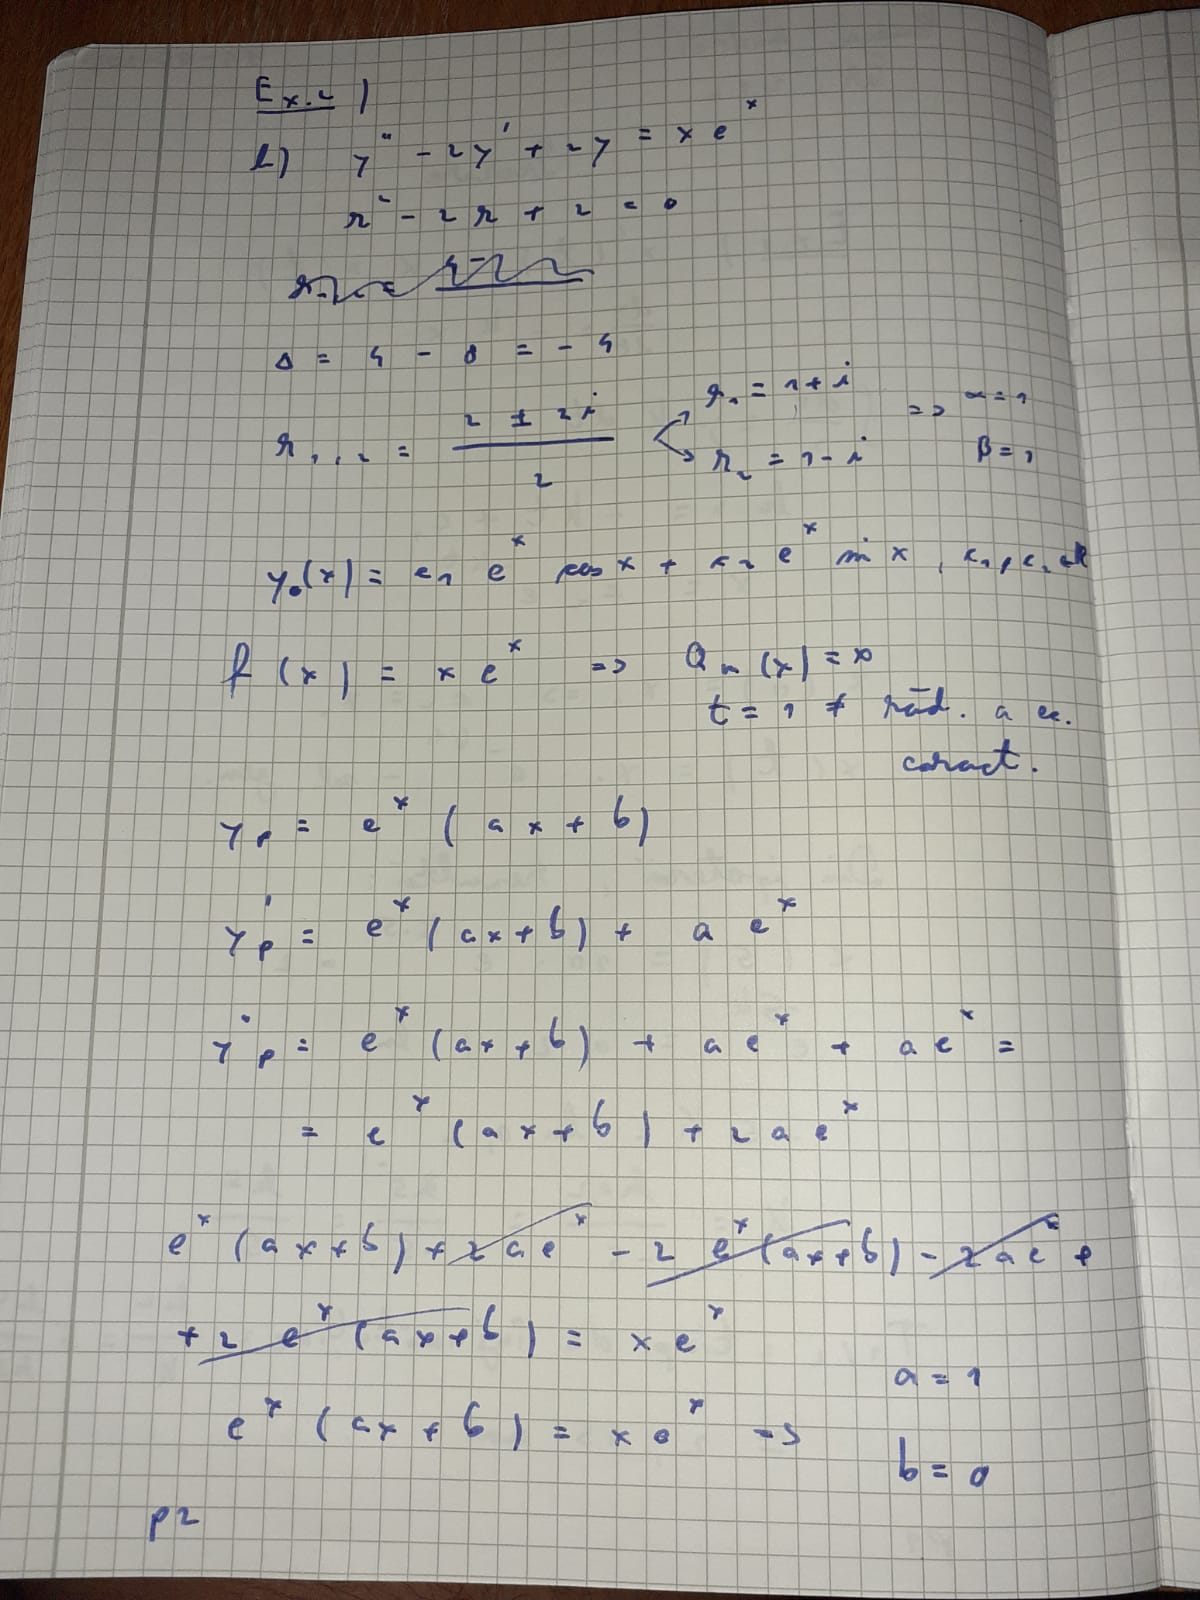 Ex. 2)
b) y'' - 2y' + 2y = x e^x
r² - 2r + 2 = 0
Δ = 4 - 8 = -4
r₁,₂ = (2 ± 2i) / 2 r₁ = 1 + i r₂ = 1 - i => α = 1 β = 1
y₀(x) = c₁ e^x cos x + c₂ e^x sin x, c₁, c₂ ∈ ℝ
f(x) = x e^x => Qₙ(x) = x
t = 1 ≠ răd. a ec.
caract.
yₚ = e^x (ax + b)
yₚ' = e^x (ax + b) + a e^x
yₚ'' = e^x (ax + b) + a e^x + a e^x =
= e^x (ax + b) + 2 a e^x
e^x (ax + b) + 2 a e^x - 2 e^x (ax + b) - 2 a e^x +
+ 2 e^x (ax + b) = x e^x
a = 1
e^x (ax + b) = x e^x =>
b = 0
p2